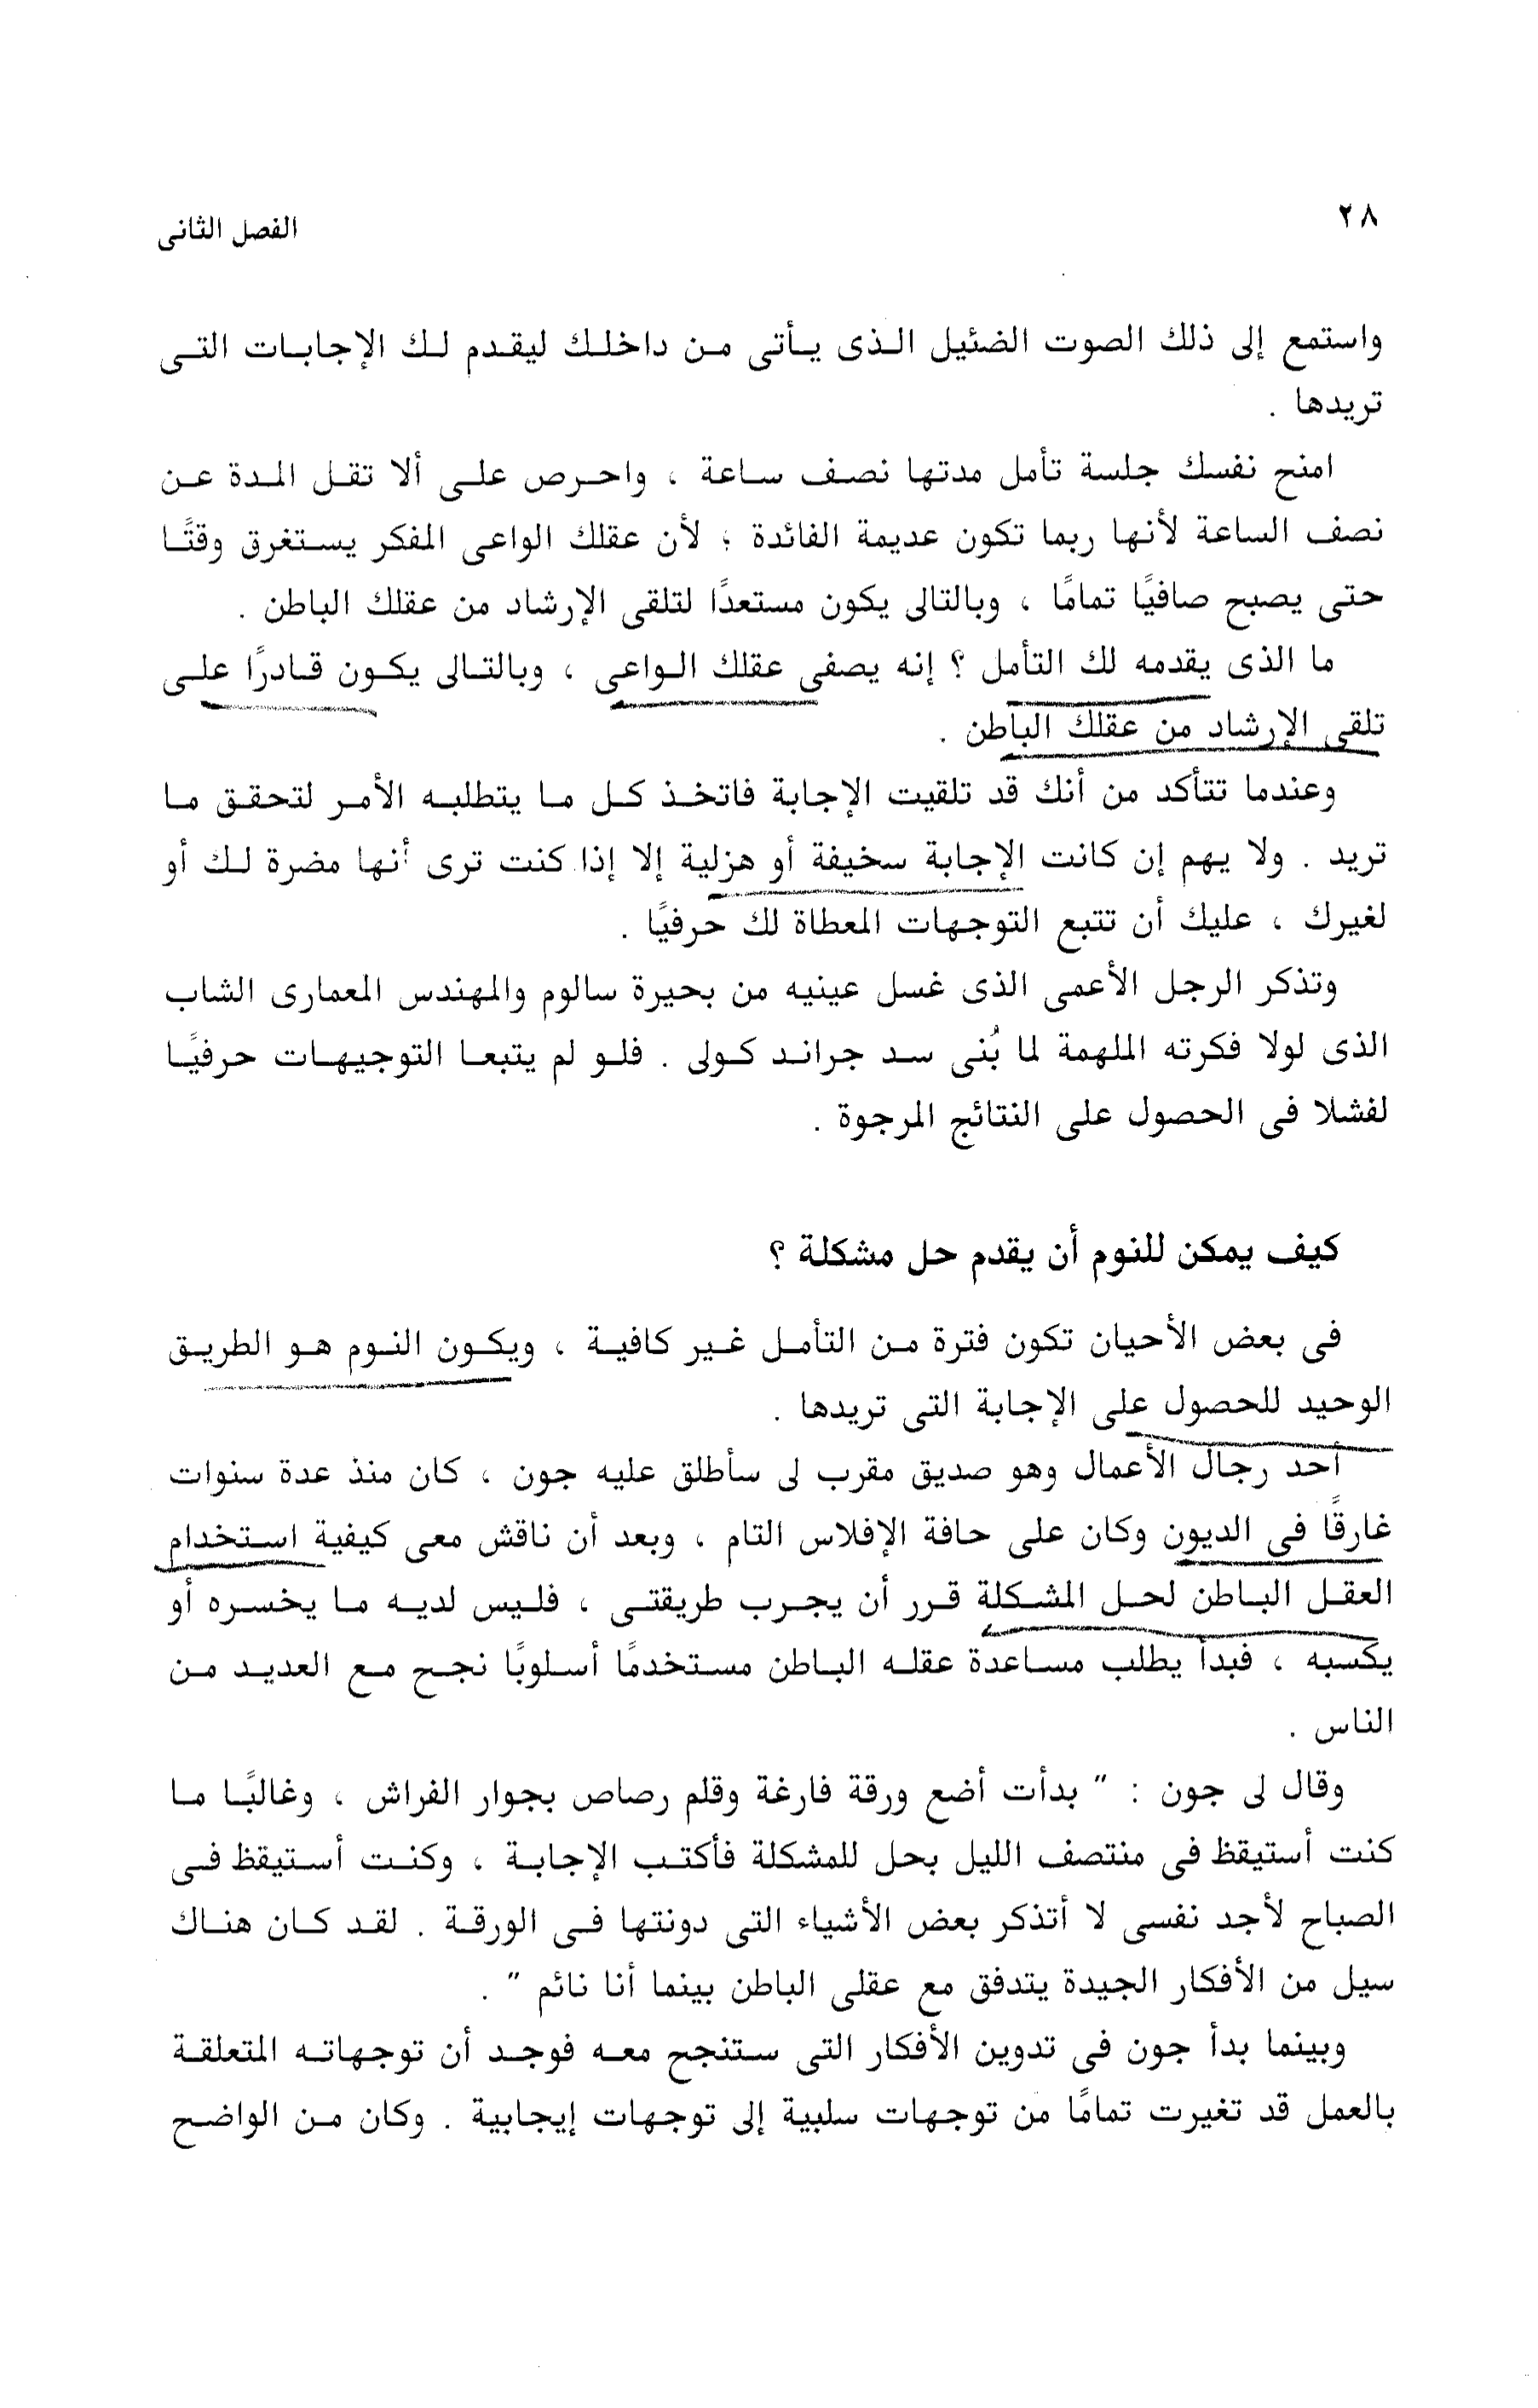 ٢٨
الفصل الثانى
واستمع إلى ذلك الصوت الضئيل الذى يأتى من داخلك ليقدم لك الإجابات التى
تريدها .
امنح نفسك جلسة تأمل مدتها نصف ساعة ، واحرص على ألا تقل المدة عن
نصف الساعة لأنها ربما تكون عديمة الفائدة ؛ لأن عقلك الواعى المفكر يستغرق وقتًا
حتى يصبح صافيًا تمامًا ، وبالتالى يكون مستعدًا لتلقى الإرشاد من عقلك الباطن .
ما الذى يقدمه لك التأمل ؟ إنه يصفى عقلك الواعى ، وبالتالى يكون قادرًا على
تلقى الإرشاد من عقلك الباطن .
وعندما تتأكد من أنك قد تلقيت الإجابة فاتخذ كل ما يتطلبه الأمر لتحقق ما
تريد . ولا يهم إن كانت الإجابة سخيفة أو هزلية إلا إذا كنت ترى أنها مضرة لك أو
لغيرك ، عليك أن تتبع التوجهات المعطاة لك حرفيًا .
وتذكر الرجل الأعمى الذى غسل عينيه من بحيرة سالوم والمهندس المعمارى الشاب
الذى لولا فكرته الملهمة لما بُنى سد جراند كولى . فلو لم يتبعا التوجيهات حرفيًا
لفشلا فى الحصول على النتائج المرجوة .
كيف يمكن للنوم أن يقدم حل مشكلة ؟
فى بعض الأحيان تكون فترة من التأمل غير كافية ، ويكون النوم هو الطريق
الوحيد للحصول على الإجابة التى تريدها .
أحد رجال الأعمال وهو صديق مقرب لى سأطلق عليه جون ، كان منذ عدة سنوات
غارقًا فى الديون وكان على حافة الإفلاس التام ، وبعد أن ناقش معى كيفية استخدام
العقل الباطن لحل المشكلة قرر أن يجرب طريقتى ، فليس لديه ما يخسره أو
يكسبه ، فبدأ يطلب مساعدة عقله الباطن مستخدمًا أسلوبًا نجح مع العديد من
الناس .
وقال لى جون : " بدأت أضع ورقة فارغة وقلم رصاص بجوار الفراش ، وغالبًا ما
كنت أستيقظ فى منتصف الليل بحل للمشكلة فأكتب الإجابة ، وكنت أستيقظ فى
الصباح لأجد نفسى لا أتذكر بعض الأشياء التى دونتها فى الورقة . لقد كان هناك
سيل من الأفكار الجيدة يتدفق مع عقلى الباطن بينما أنا نائم " .
وبينما بدأ جون فى تدوين الأفكار التى ستنجح معه فوجد أن توجهاته المتعلقة
بالعمل قد تغيرت تمامًا من توجهات سلبية إلى توجهات إيجابية . وكان من الواضح